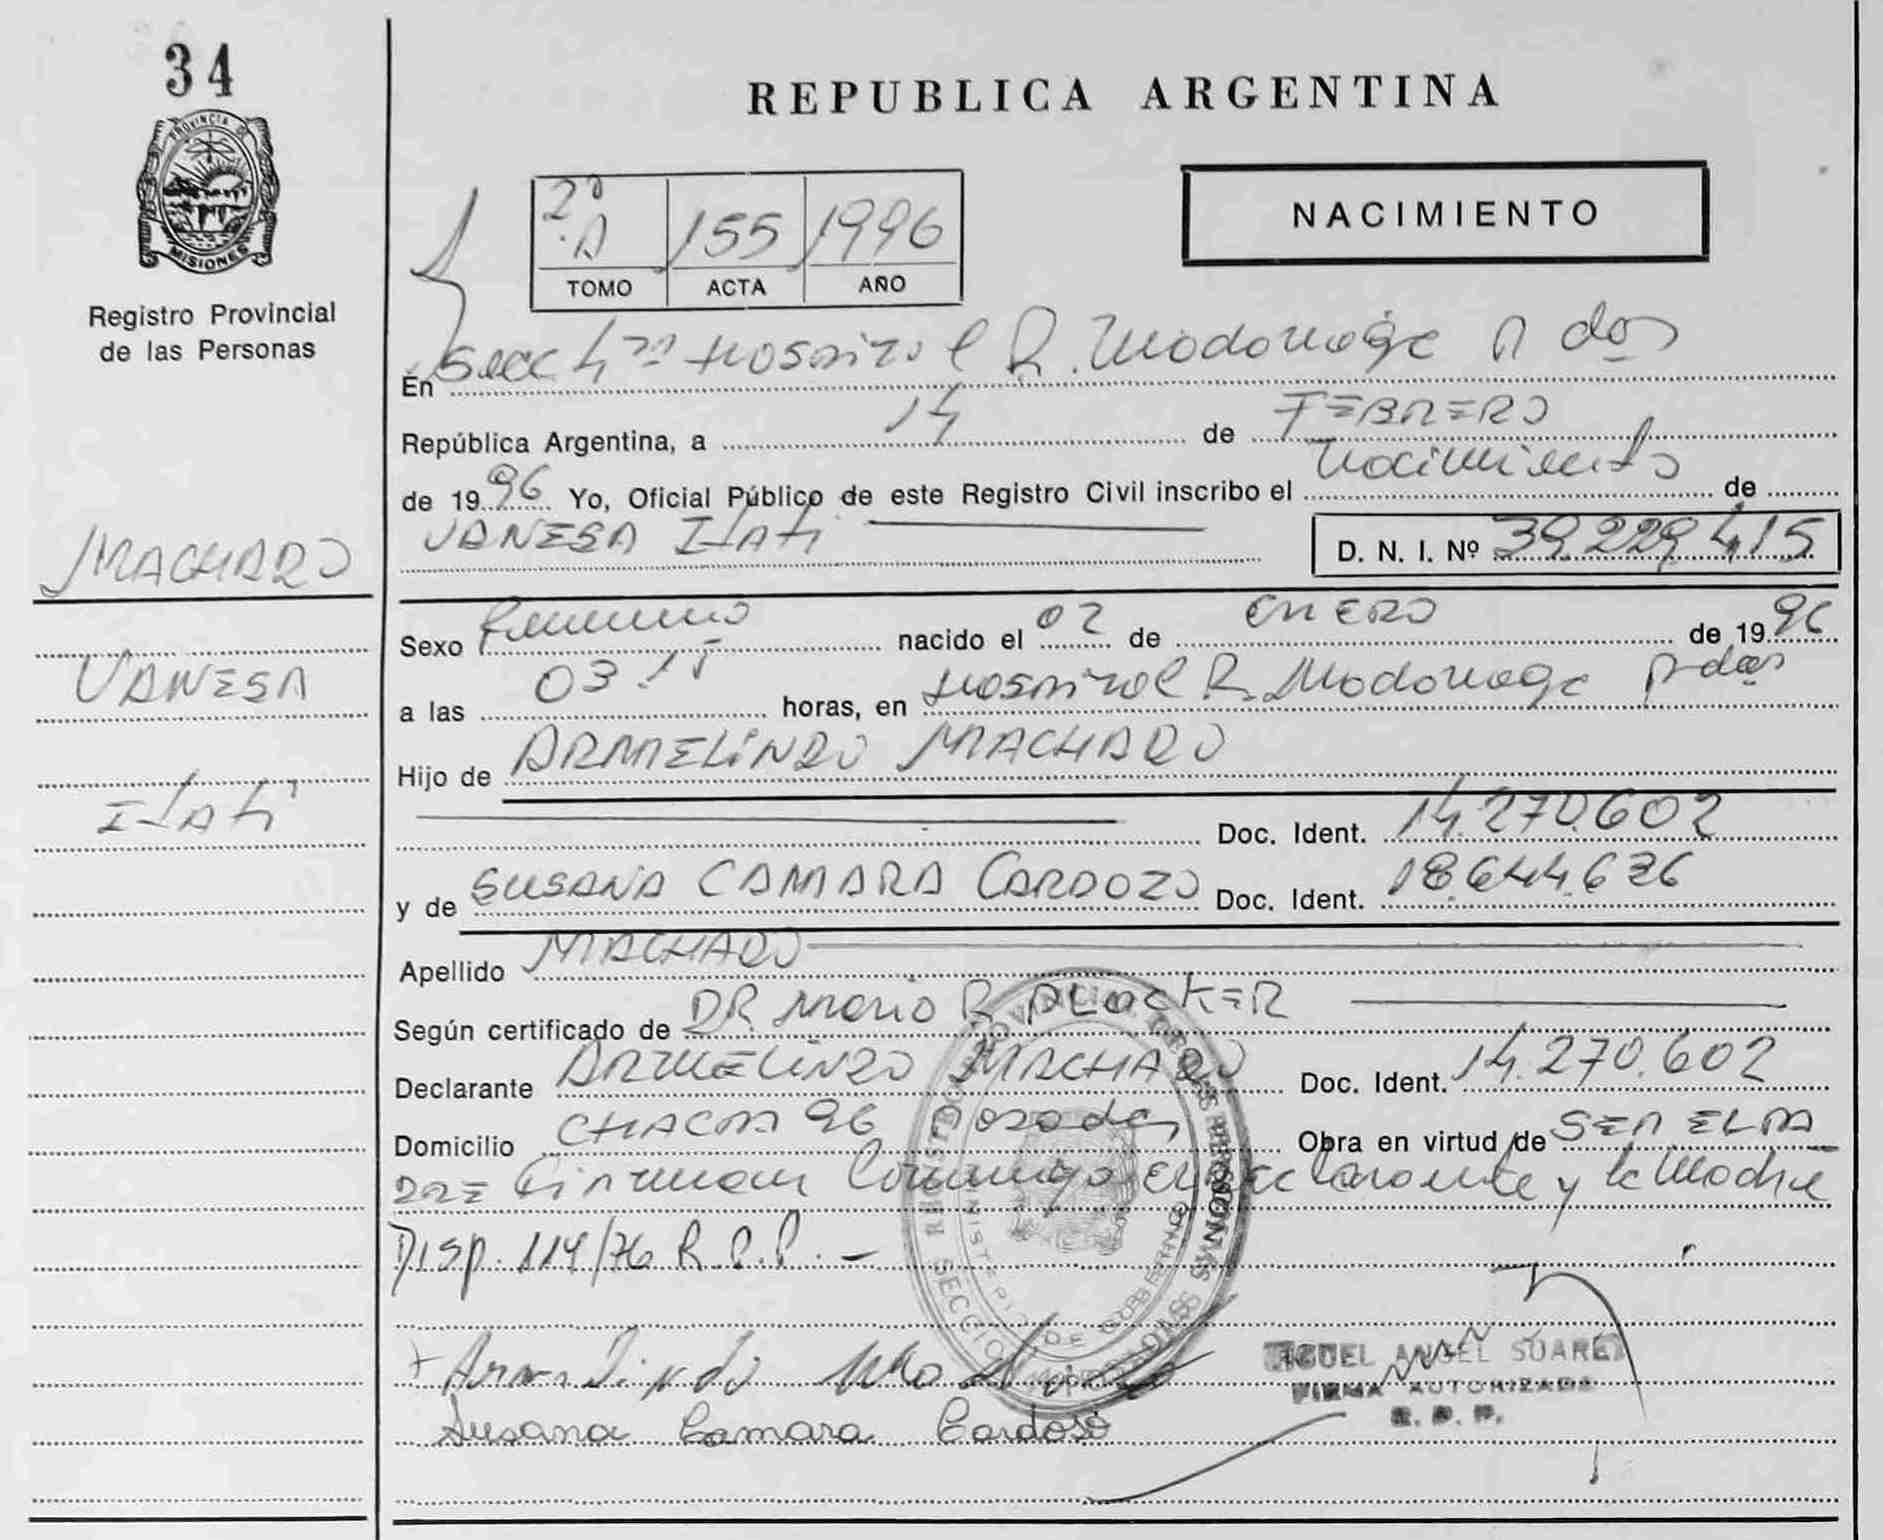 34
PROVINCIA DE
MISIONES
Registro Provincial
de las Personas
MACHADO
VANESA
Itatí
REPUBLICA ARGENTINA
2º A 155 1996
TOMO ACTA AÑO
NACIMIENTO
En Secc 4ta Hospital R. Madariaga Pdas
República Argentina, a 14 de FEBRERO
de 1996 Yo, Oficial Público de este Registro Civil inscribo el Nacimiento de
VANESA Itatí D. N. I. Nº 39.229.415
Sexo femenino nacido el 02 de ENERO de 1996
a las 03.15 horas, en Hospital R. Madariaga Pdas
Hijo de ARMELINDO MACHADO
Doc. Ident. 14.270.602
y de SUSANA CAMARA CARDOZO Doc. Ident. 18.644.636
Apellido MACHADO
Según certificado de DR Mario R
Declarante ARMELINDO MACHADO Doc. Ident. 14.270.602
Domicilio CHACRA 96 Posadas Obra en virtud de SER EL PA
DRE Firman Conmigo el declarante y la Madre
Disp. 114/76 R.P.P. -
REGISTRO PROVINCIAL DE LAS PERSONAS
MINISTERIO DE GOBIERNO
SECCION
POSADAS MISIONES
Susana Camara Cardoso
MIGUEL ANGEL SUAREZ
FIRMA AUTORIZADA
R. P. P.